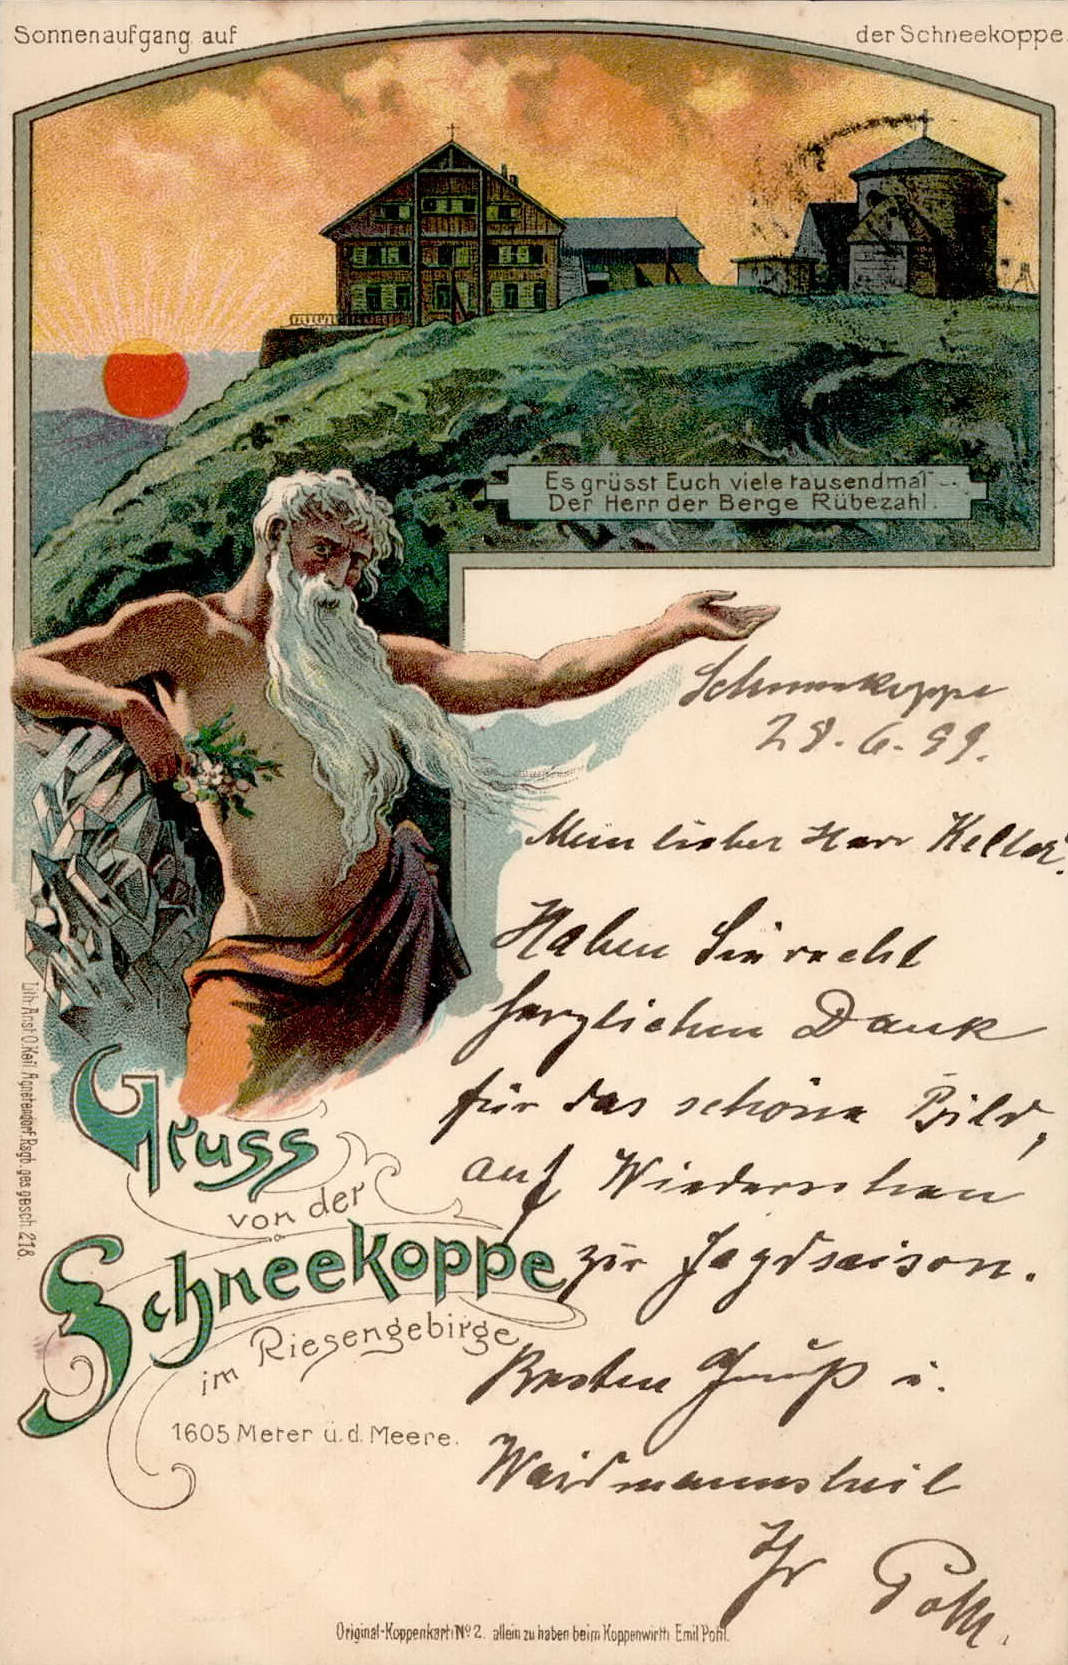 Sonnenaufgang auf der Schneekoppe.
Es grüsst Euch viele tausendmal
Der Herr der Berge Rübezahl.
Schneekoppe
28.6.99.
Mein lieber Herr Keller!
Haben Sie recht
herzlichen Dank
für das schöne Bild,
auf Wiedersehen
zur Jagdsaison.
Besten Gruß u.
Waidmannsheil
Ihr
Gruss
von der
Schneekoppe
im Riesengebirge
1605 Meter ü. d. Meere.
Lith. Anst. O. Keil, Agnetendorf Rsgb. ges. gesch. 218.
Original-Koppenkarte No 2. allein zu haben beim Koppenwirth Emil Pohl.